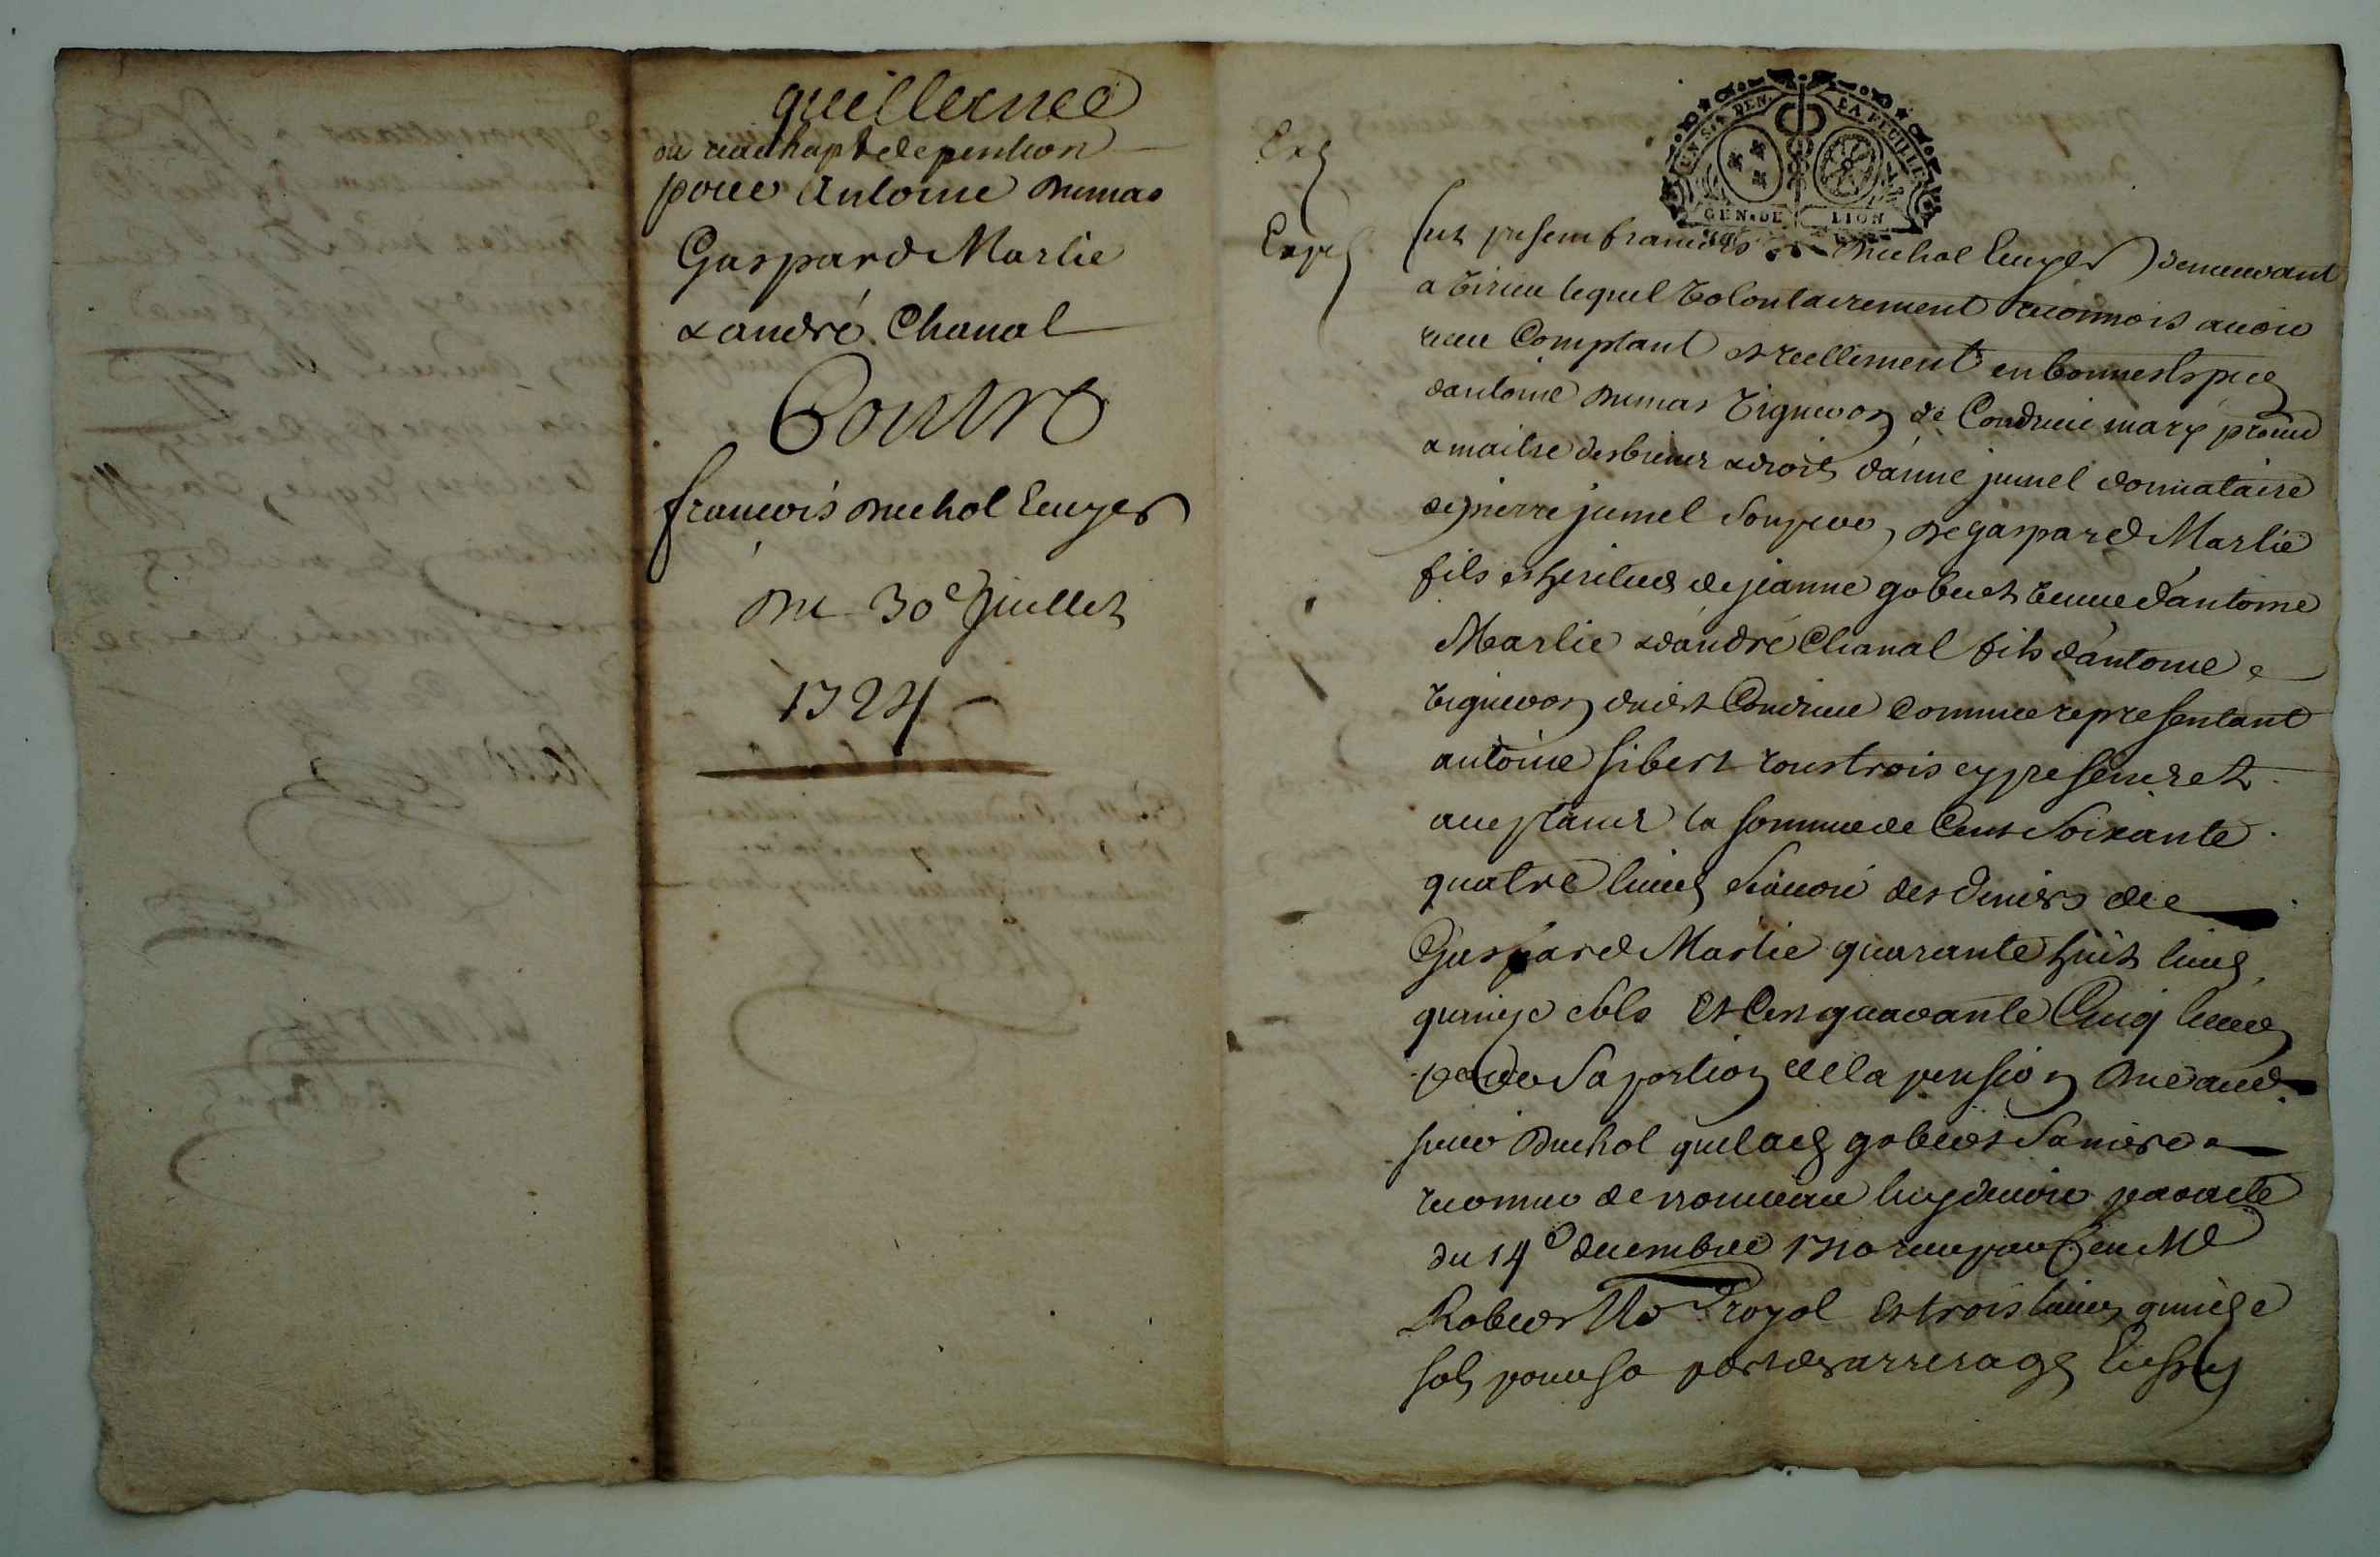 quittance
ou rachapt de pention
pour Antoine Dumas
Gaspard Marlie
& andré Chanal
Contre
francois Duchol
Du 30e Juillet
1724
UN S. 4 DEN. LA FEUILLE
GEN. DE LION
Exp
fut present francois Duchol demeurant
a lequel volontairement reconnois avoir
receu Comptant et reellement en bonnes
dantoine Dumas vigneron de Condrieu mary
& maitre des biens & droits danne jumel donnataire
de pierre jumel son pere, de gaspard Marlie
fils et heritier de jeanne gobert veuve dantoine
Marlie & dandré Chanal fils dantoine
vigneron dudit Condrieu comme representant
antoine sibert tous trois cy presents et
acceptants la somme de Cent Soixante
quatre livres scavoir des deniers de
Gaspard Marlie quarante huit livres
quinze sols Et quarante Cinq livres
pour Sa portion de la pension due aud.
sieur Duchol que lad. gobert Sa mere a
reconnu de nouveau luy devoir par acte
du 14e decembre 1710 receu par feu Me
Robert No royal Et trois livres quinze
sols pour sa part des arrerages